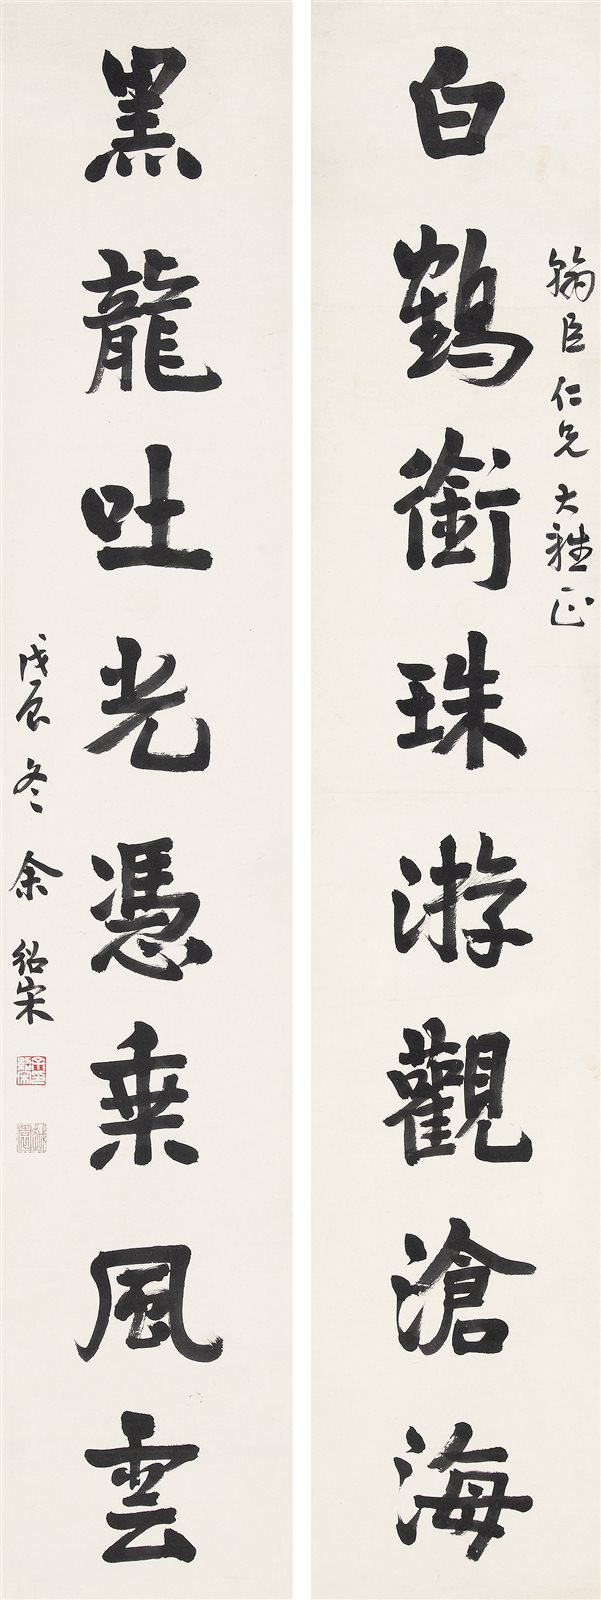 翰臣仁兄大雅正
白鶴銜珠游觀滄海
黑龍吐光憑乗風雲
戊辰冬余紹宋